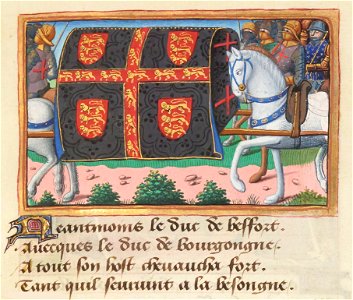 Neantmoins le duc de beffort.
Auecques le duc de bourgongne.
A tout son host cheuaucha fort.
Tant quil seruirent a la besongne.